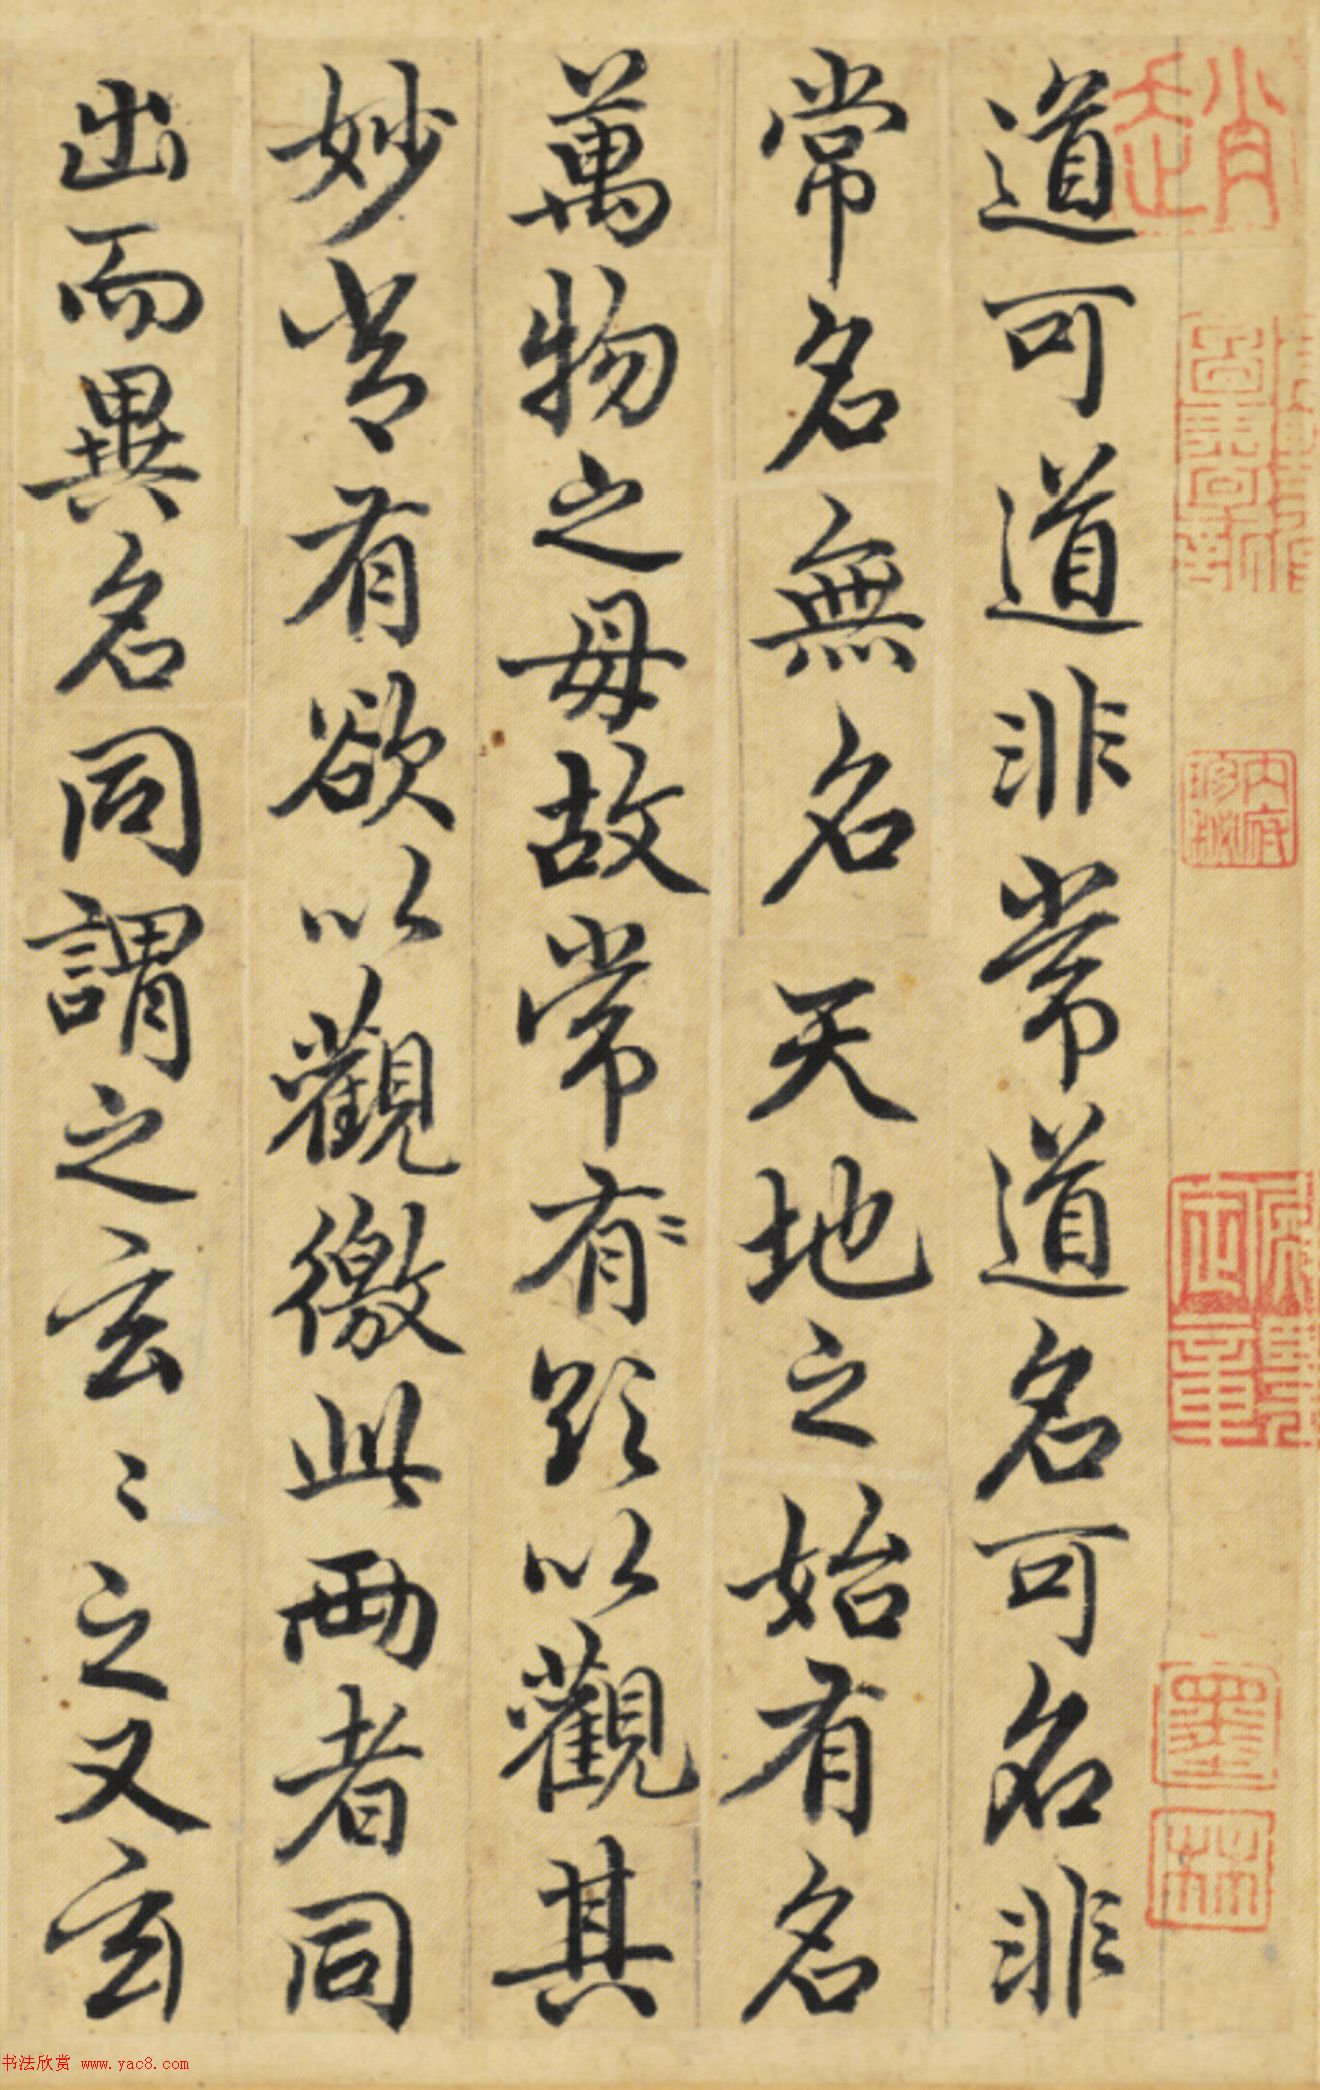 趙
墨
林
道可道非常道名可名非
常名無名天地之始有名
萬物之母故常有〻欲以觀其
妙常有欲以觀徼此兩者同
出而異名同謂之玄〻之又玄
书法欣赏 www.yac8.com